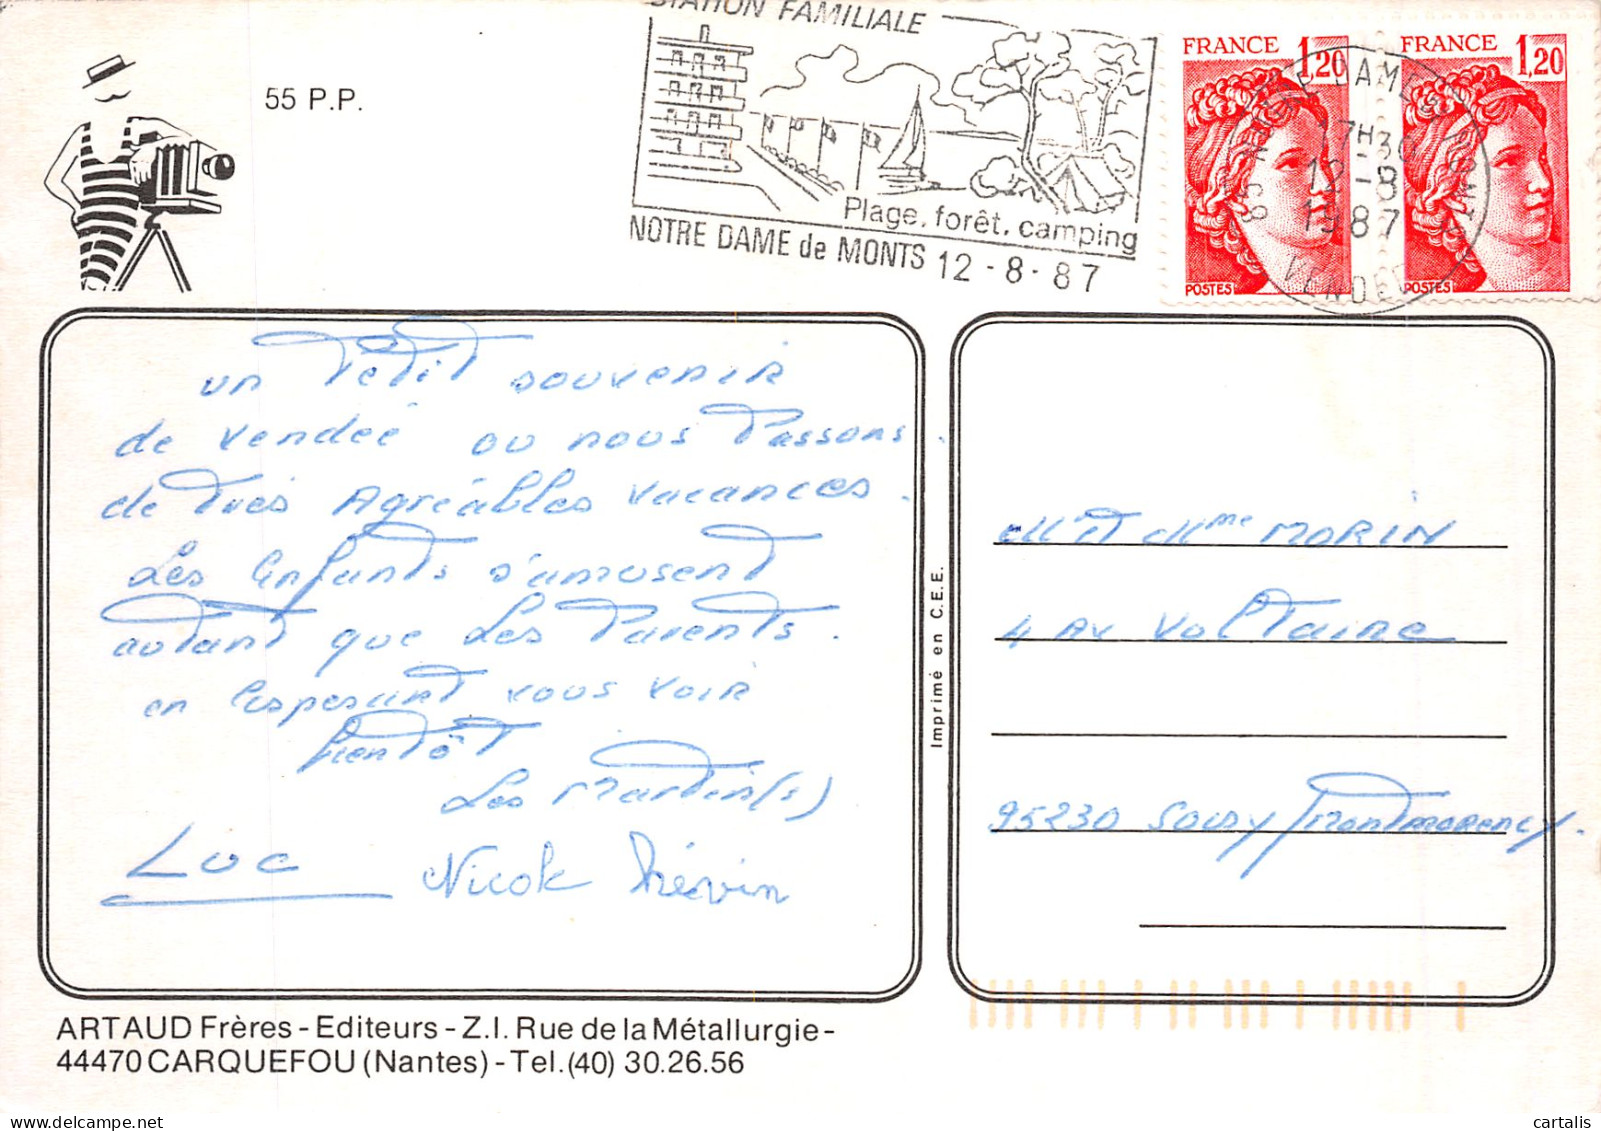 STATION FAMILIALE
55 P.P.
Plage, forêt, camping
NOTRE DAME de MONTS 12-8-87
FRANCE 1,20
POSTES
FRANCE 1,20
POSTES
17H30
12-8
1987
VENDEE
un Petit souvenir
de vendée ou nous Passons
de Très Agréables vacances.
Les Enfants s'amusent
autant que Les Parents.
en Espérant vous voir
bientôt
Les Martin(s)
Luc Nicole
Imprimé en C.E.E.
Mr et Mme MORIN
4 Av Voltaire
95230 Soisy/Montmorency.
ARTAUD Frères - Editeurs - Z.I. Rue de la Métallurgie -
44470 CARQUEFOU (Nantes) - Tel. (40) 30.26.56
cartalis